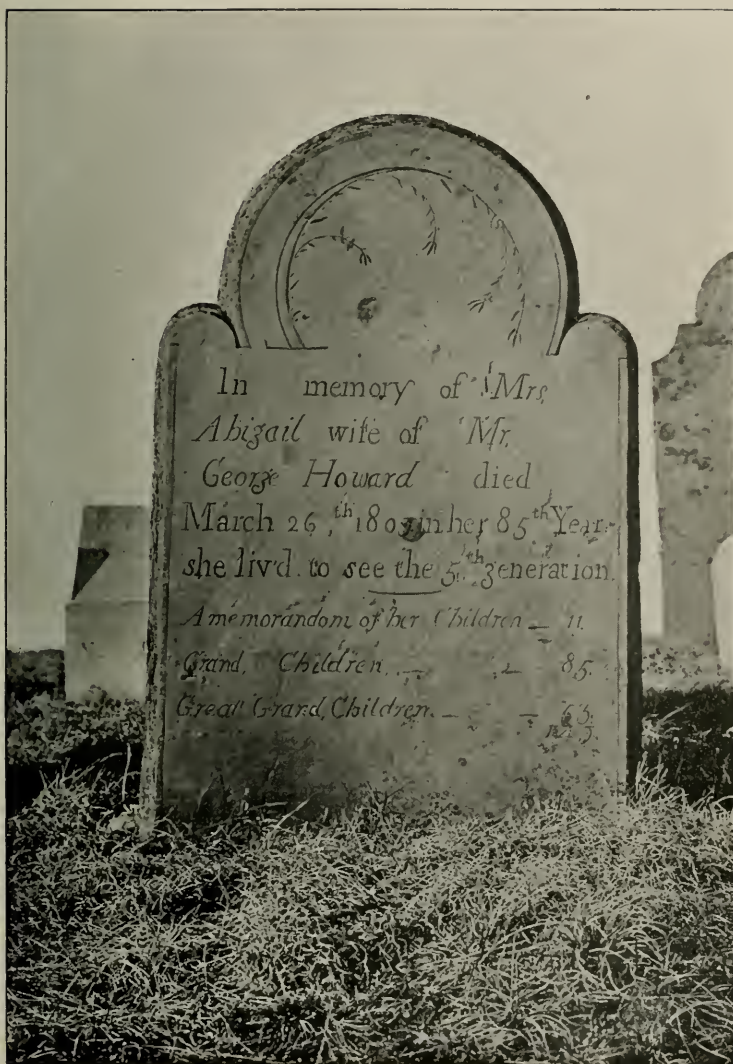 In memory of Mrs.
Abigail wife of Mr.
George Howard died
March 26,th in her 85th Year.
she liv'd to see the 5th generation.
A memorandom of her Children — 11.
Grand, Children. — — 85.
Great Grand, Children. — —